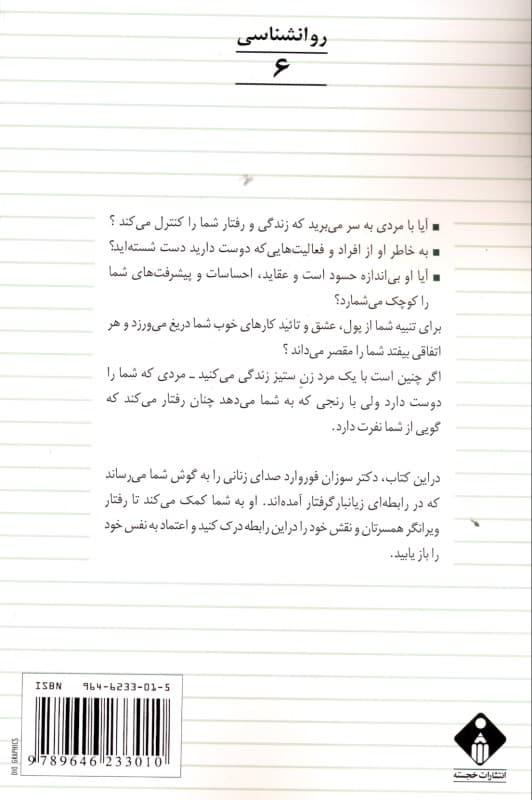 روانشناسی
۶
■ آیا با مردی به سر می‌برید که زندگی و رفتار شما را کنترل می‌کند ؟
■ به خاطر او از افراد و فعالیت‌هایی‌که دوست دارید دست شسته‌اید؟
■ آیا او بی‌اندازه حسود است و عقاید، احساسات و پیشرفت‌های شما
را کوچک می‌شمارد؟
برای تنبیه شما از پول، عشق و تائید کارهای خوب شما دریغ می‌ورزد و هر
اتفاقی بیفتد شما را مقصر می‌داند ؟
اگر چنین است با یک مرد زنِ ستیز زندگی می‌کنید ـ مردی که شما را
دوست دارد ولی با رنجی که به شما می‌دهد چنان رفتار می‌کند که
گویی از شما نفرت دارد.
دراین کتاب، دکتر سوزان فوروارد صدای زنانی را به گوش شما می‌رساند
که در رابطه‌ای زیانبارگرفتار آمده‌اند. او به شما کمک می‌کند تا رفتار
ویرانگر همسرتان و نقش خود را دراین رابطه درک کنید و اعتماد به نفس خود
را باز یابید.
ISBN 964-6233-01-5
9 789646 233010
DID GRAPHICS
انتشارات خجسته